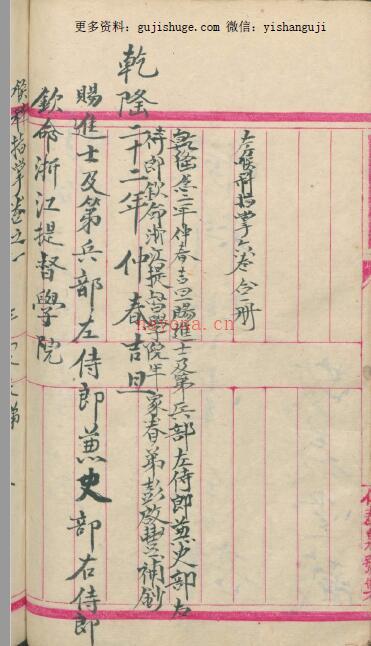 更多资料：gujishuge.com 微信：yishanguji
喉科指掌六卷合一册
乾隆念二年仲春吉旦賜進士及第兵部左侍郎兼史部右
侍郎欽命浙江提督學院年家眷弟彭啟豐補鈔
乾隆二十二年仲春吉旦
賜進士及第兵部左侍郎兼史部右侍郎
欽命浙江提督學院
喉科指掌卷之一
hayona.cn